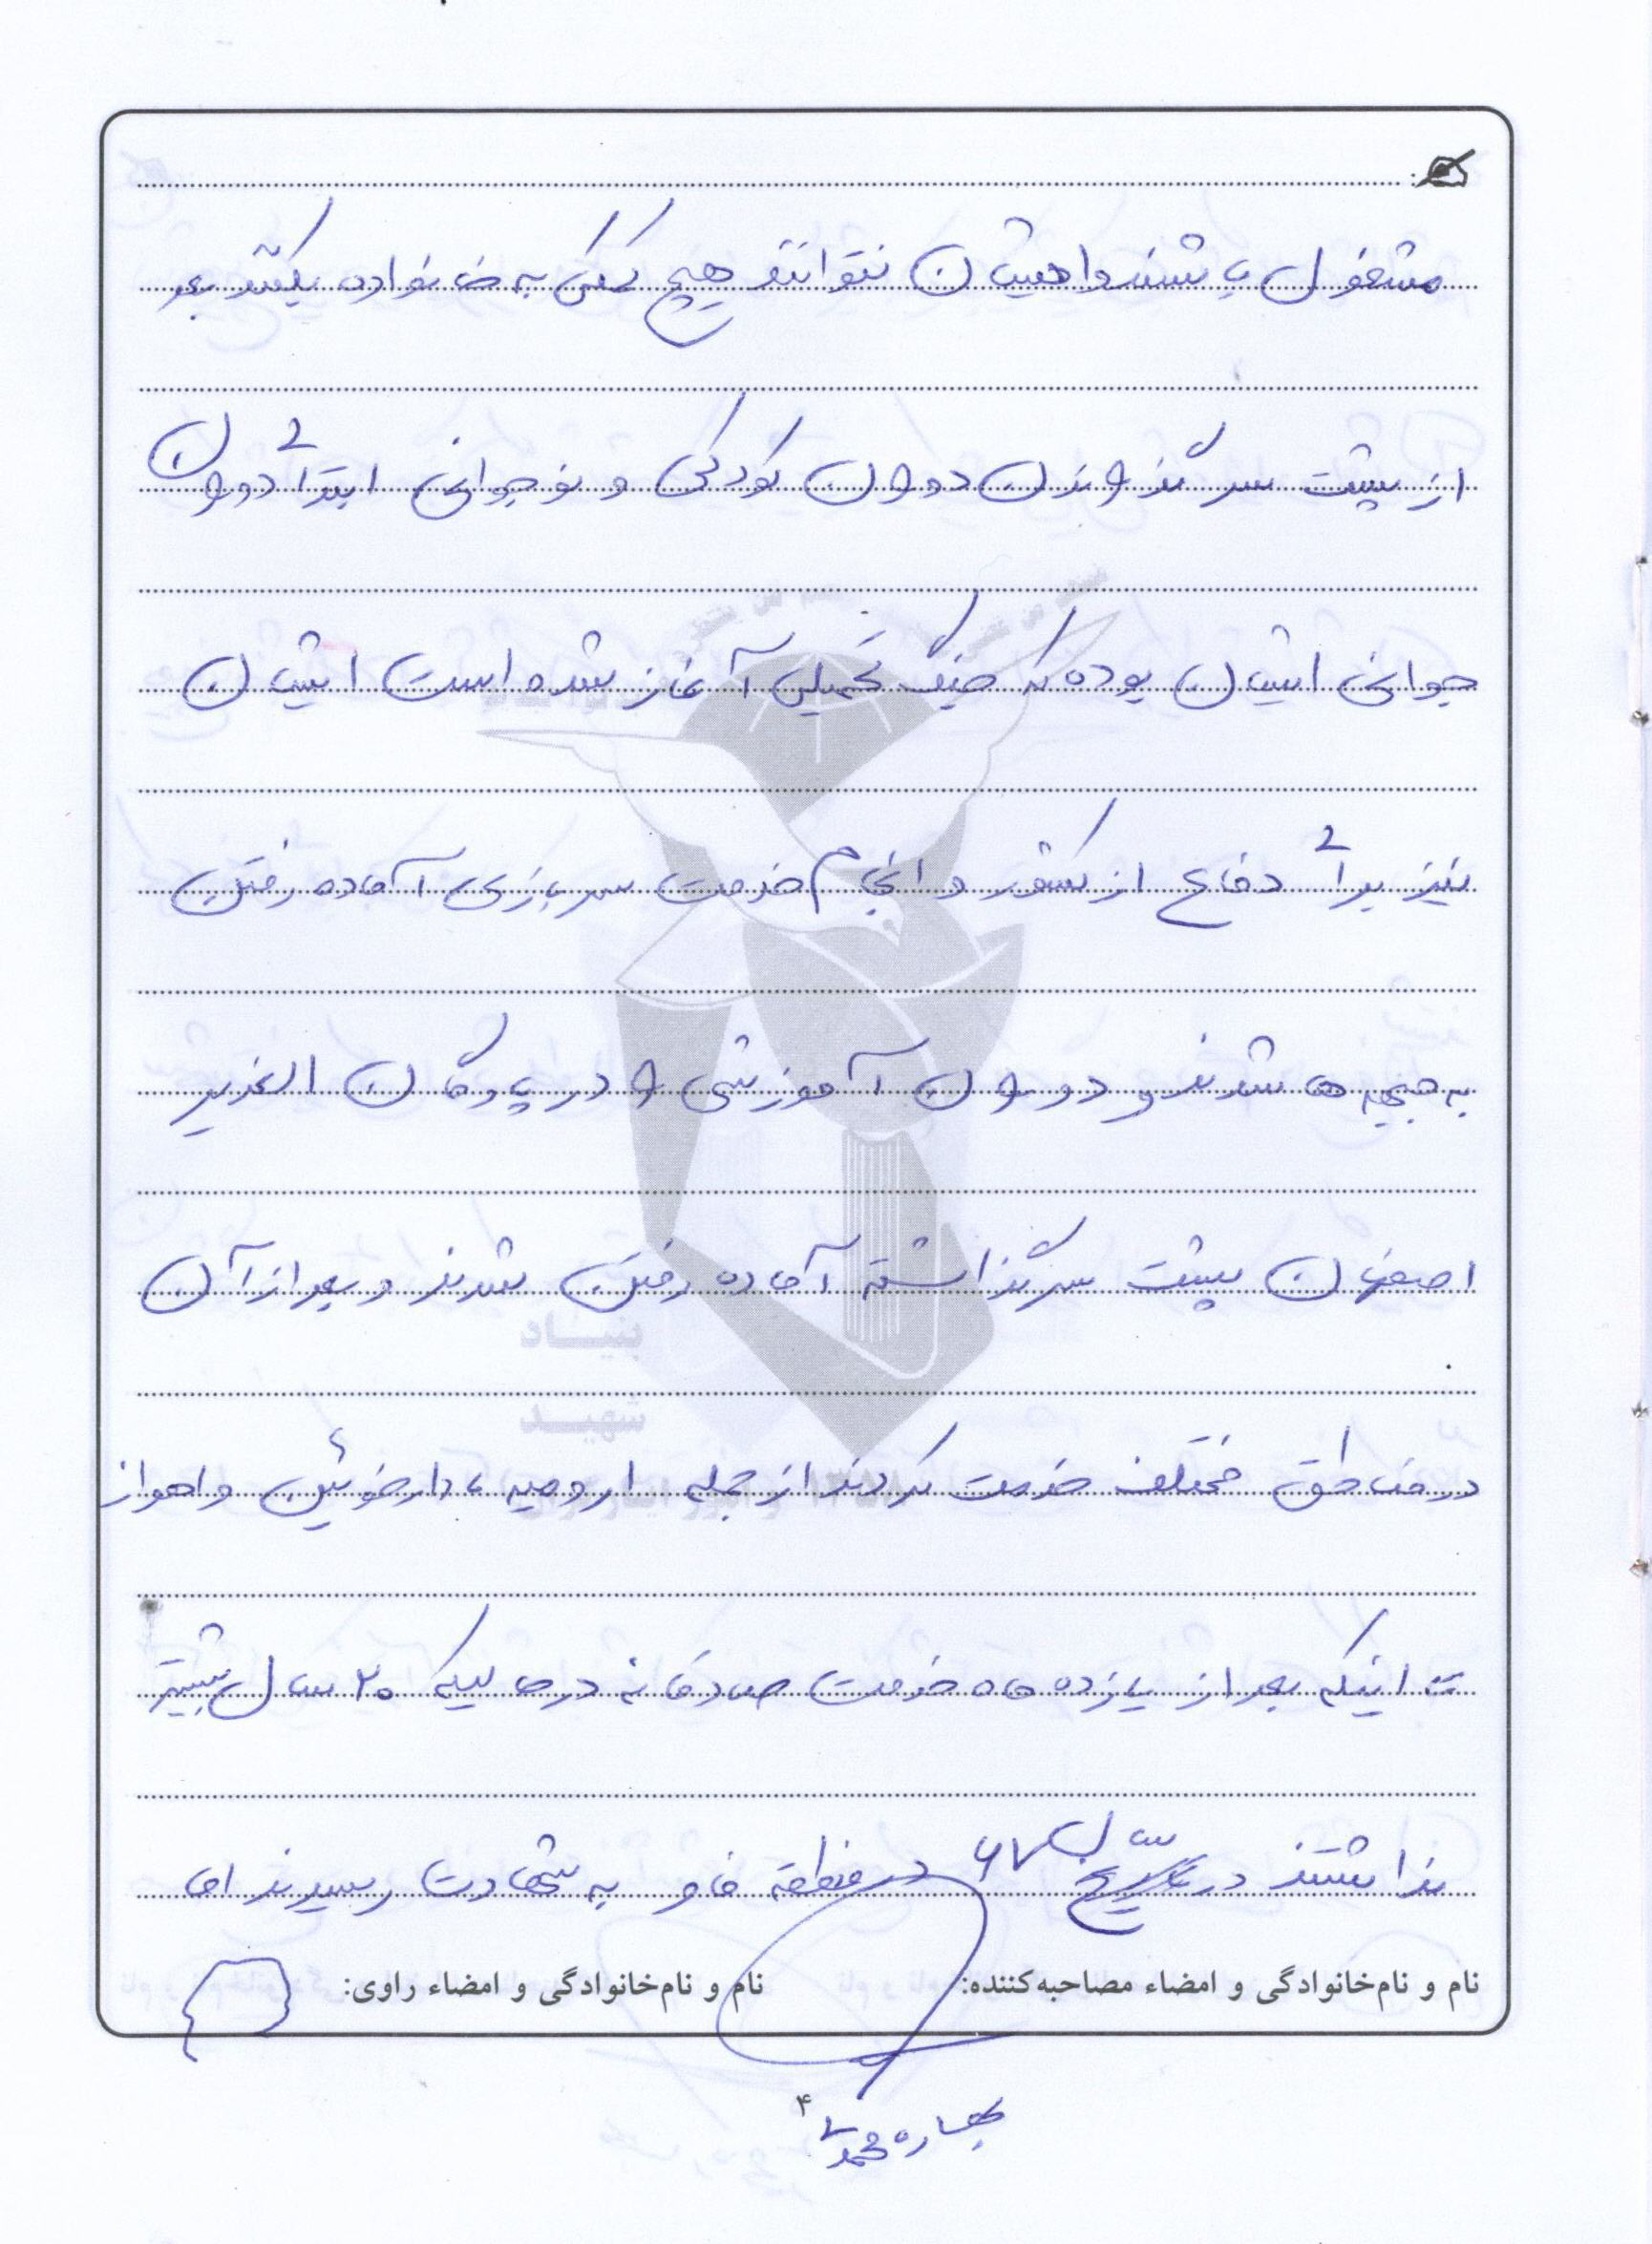 مشغول باشند و ایشان نتوانند هیچ کمکی به خانواده بکنند بعد
از پشت سر گذراندن دوران کودکی و نوجوانی ابتدای دوران
جوانی ایشان بوده که جنگ تحمیلی آغاز شده است ایشان
نیز برای دفاع از کشور و انجام خدمت سربازی آماده رفتن
به جبهه ها شدند و دوران آموزشی را در پادگان الغدیر
اصفهان پشت سر گذاشته آماده رفتن شدند و بعد از آن
در مناطق مختلف خدمت کردند از جمله ارومیه، دارخوئین و اهواز
تا اینکه بعد از یازده ماه خدمت صادقانه در حالیکه ۲۰ سال بیشتر
نداشتند در تاریخ سال ۶۷ در منطقه فاو به شهادت رسیدند اما
نام و نام‌خانوادگی و امضاء مصاحبه‌کننده: نام و نام‌خانوادگی و امضاء راوی:
۴
بنیاد
شهید